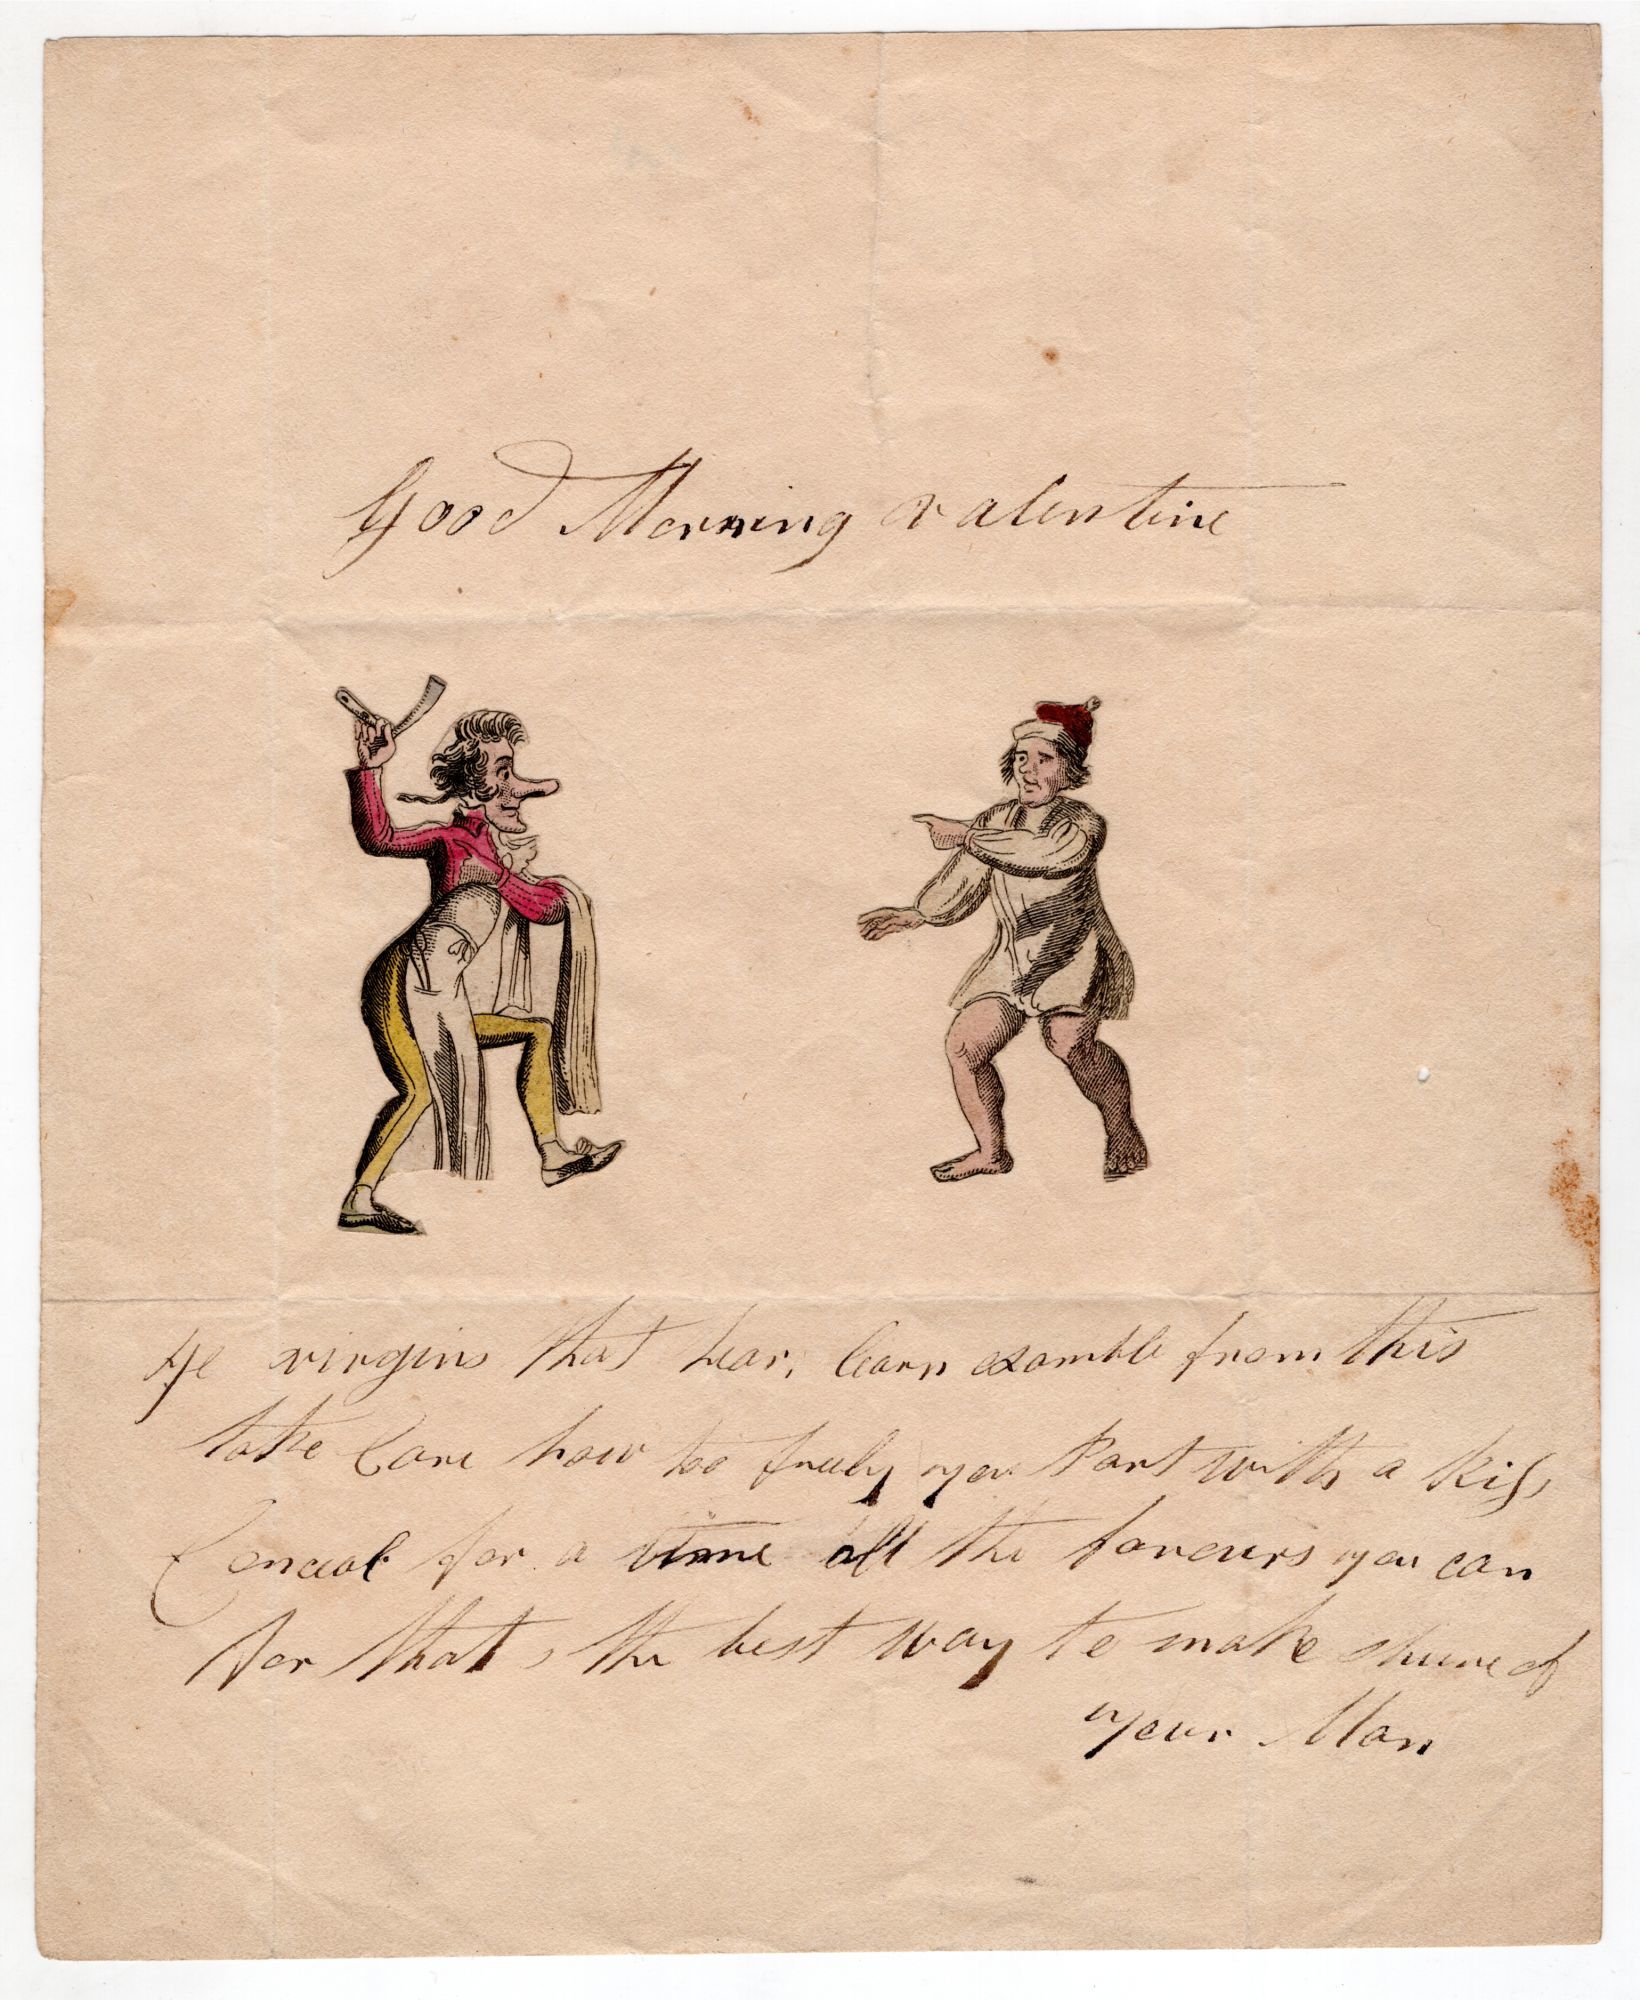 Good Morning valentine
Ye virgins that hear, learn examble from this
take Care how too freely you Part with a kiss,
Conceal for a time all the favours you can
for that, the best way to make shure of
your Man